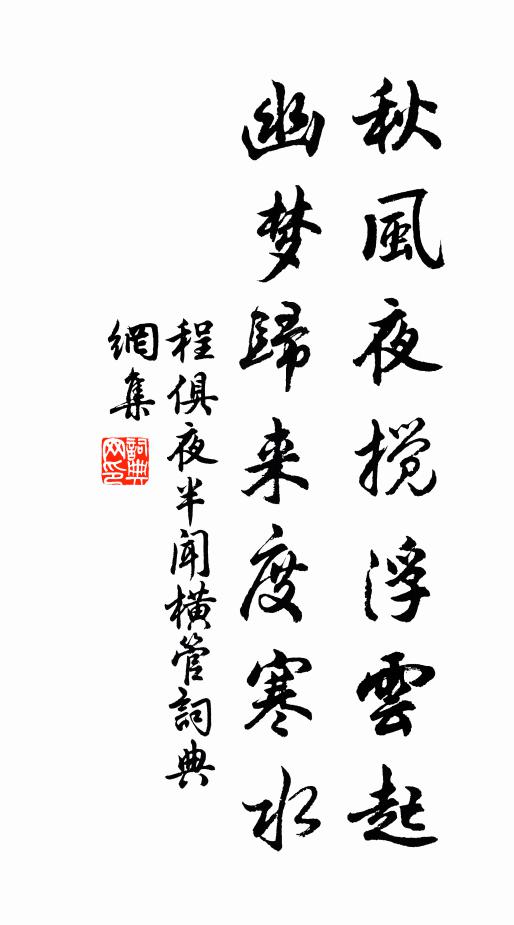 秋風夜搅浮雲起
幽梦歸来度寒水
程俱夜半闻橫管詞典
網集
詞典网印